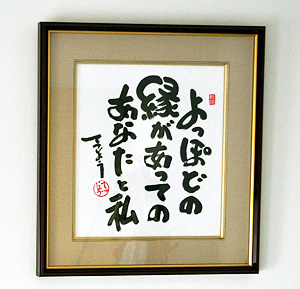 よっぽどの
縁があっての
あなたと私